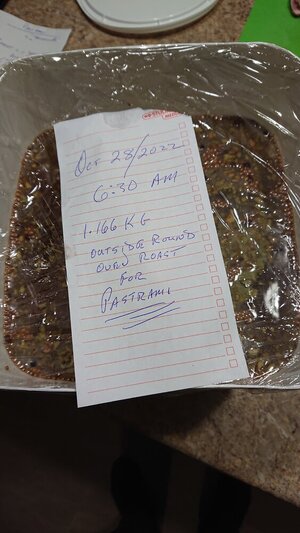 Oct 28/2022
6:30 AM
1.166 KG
OUTSIDE ROUND
OVEN ROAST
FOR
PASTRAMI